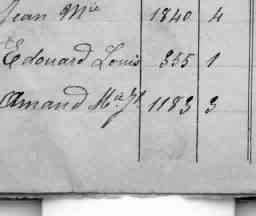 Jean Mie 1840 4
Edouard Louis 355 1
Amand Mie Jh 1183 3